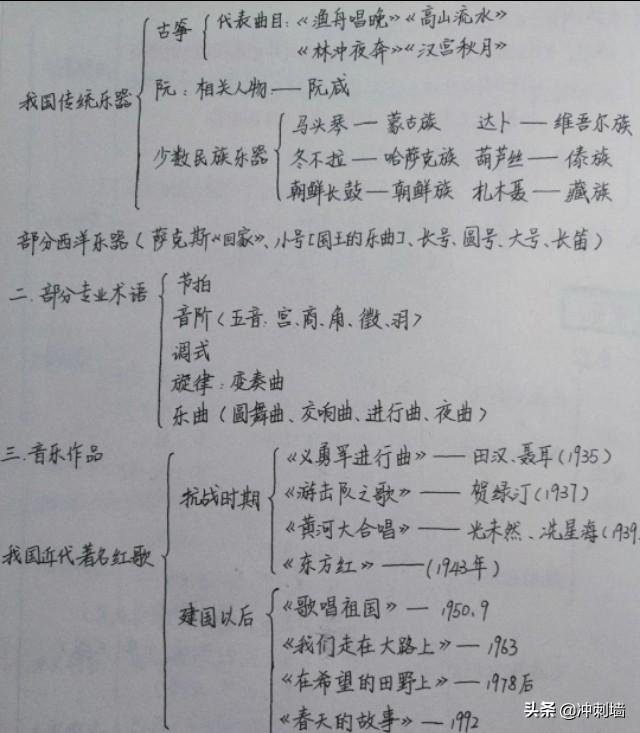 古筝 代表曲目:《渔舟唱晚》《高山流水》
《林冲夜奔》《汉宫秋月》
我国传统乐器
阮:相关人物——阮咸
少数民族乐器
马头琴——蒙古族 达卜——维吾尔族
冬不拉——哈萨克族 葫芦丝——傣族
朝鲜长鼓——朝鲜族 札木聂——藏族
部分西洋乐器(萨克斯《回家》、小号[国王的乐曲]、长号、圆号、大号、长笛)
二.部分专业术语
节拍
音阶(五音:宫、商、角、徵、羽)
调式
旋律:变奏曲
乐曲(圆舞曲、交响曲、进行曲、夜曲)
三.音乐作品
我国近代著名红歌
抗战时期
《义勇军进行曲》——田汉、聂耳(1935)
《游击队之歌》——贺绿汀(1937)
《黄河大合唱》——光未然、冼星海(1939.
《东方红》——(1943年)
建国以后
《歌唱祖国》—1950.9
《我们走在大路上》—1963
《在希望的田野上》—1978后
《春天的故事》—1992
头条@冲刺墙